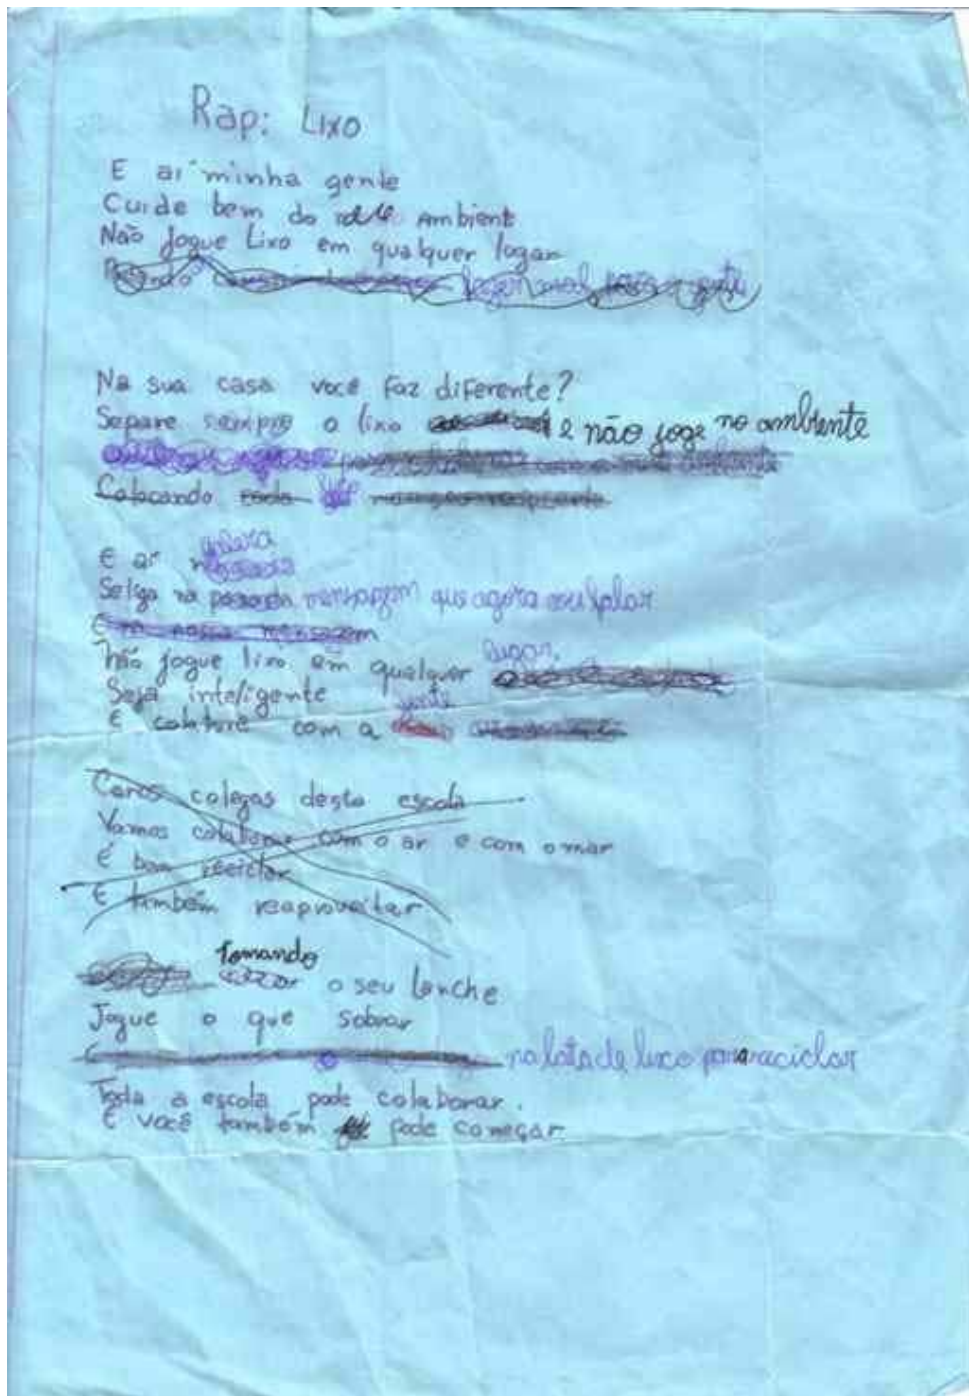 Rap: Lixo
E aí minha gente
Cuide bem do ambient
Não jogue Lixo em qualquer lugar
Na sua casa você faz diferente?
Separe sempre o lixo e não joge no ambiente
Colocando cada
E aí galera
Se liga na mensagem que agora vou falar
E na nossa mensagem
Não jogue lixo em qualquer lugar.
Seja inteligente
E colabore com a gente
Caros colegas desta escola
Vamos colaborar com o ar e com o mar
É bom reciclar
E também reaproveitar
Tomando o seu lanche
Jogue o que sobrar
na lata de lixo para reciclar
Toda a escola pode colaborar.
E você também pode começar